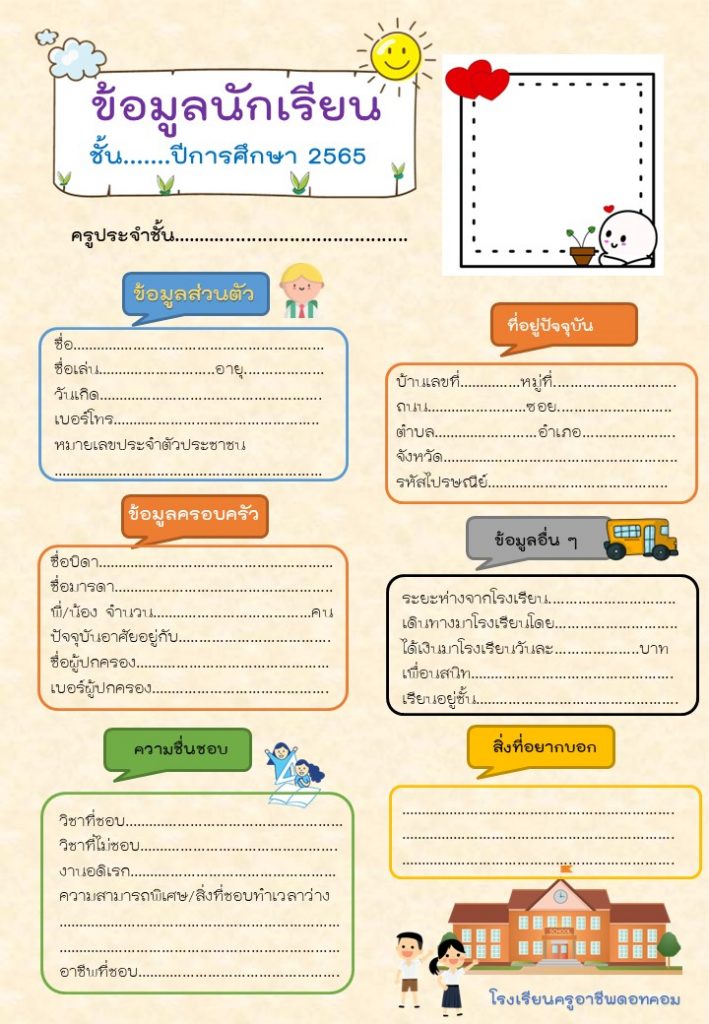 ข้อมูลนักเรียน
ชั้น.......ปีการศึกษา 2565
ครูประจำชั้น............................................
ข้อมูลส่วนตัว
ชื่อ.........................................................
ชื่อเล่น...........................อายุ...................
วันเกิด...................................................
เบอร์โทร................................................
หมายเลขประจำตัวประชาชน
..............................................................
ที่อยู่ปัจจุบัน
บ้านเลขที่..............หมู่ที่.............................
ถนน.......................ซอย...........................
ตำบล........................อำเภอ......................
จังหวัด......................................................
รหัสไปรษณีย์..........................................
ข้อมูลครอบครัว
ชื่อบิดา......................................................
ชื่อมารดา..................................................
พี่/น้อง จำนวน...........................................คน
ปัจจุบันอาศัยอยู่กับ...................................
ชื่อผู้ปกครอง.............................................
เบอร์ผู้ปกครอง.........................................
ข้อมูลอื่น ๆ
ระยะห่างจากโรงเรียน..............................
เดินทางมาโรงเรียนโดย............................
ได้เงินมาโรงเรียนวันละ....................บาท
เพื่อนสนิท...............................................
เรียนอยู่ชั้น...............................................
ความชื่นชอบ
วิชาที่ชอบ..................................................
วิชาที่ไม่ชอบ..............................................
งานอดิเรก................................................
ความสามารถพิเศษ/สิ่งที่ชอบทำเวลาว่าง
.................................................................
.................................................................
อาชีพที่ชอบ...............................................
สิ่งที่อยากบอก
...............................................................
...............................................................
...............................................................
SCHOOL
โรงเรียนครูอาชีพดอทคอม